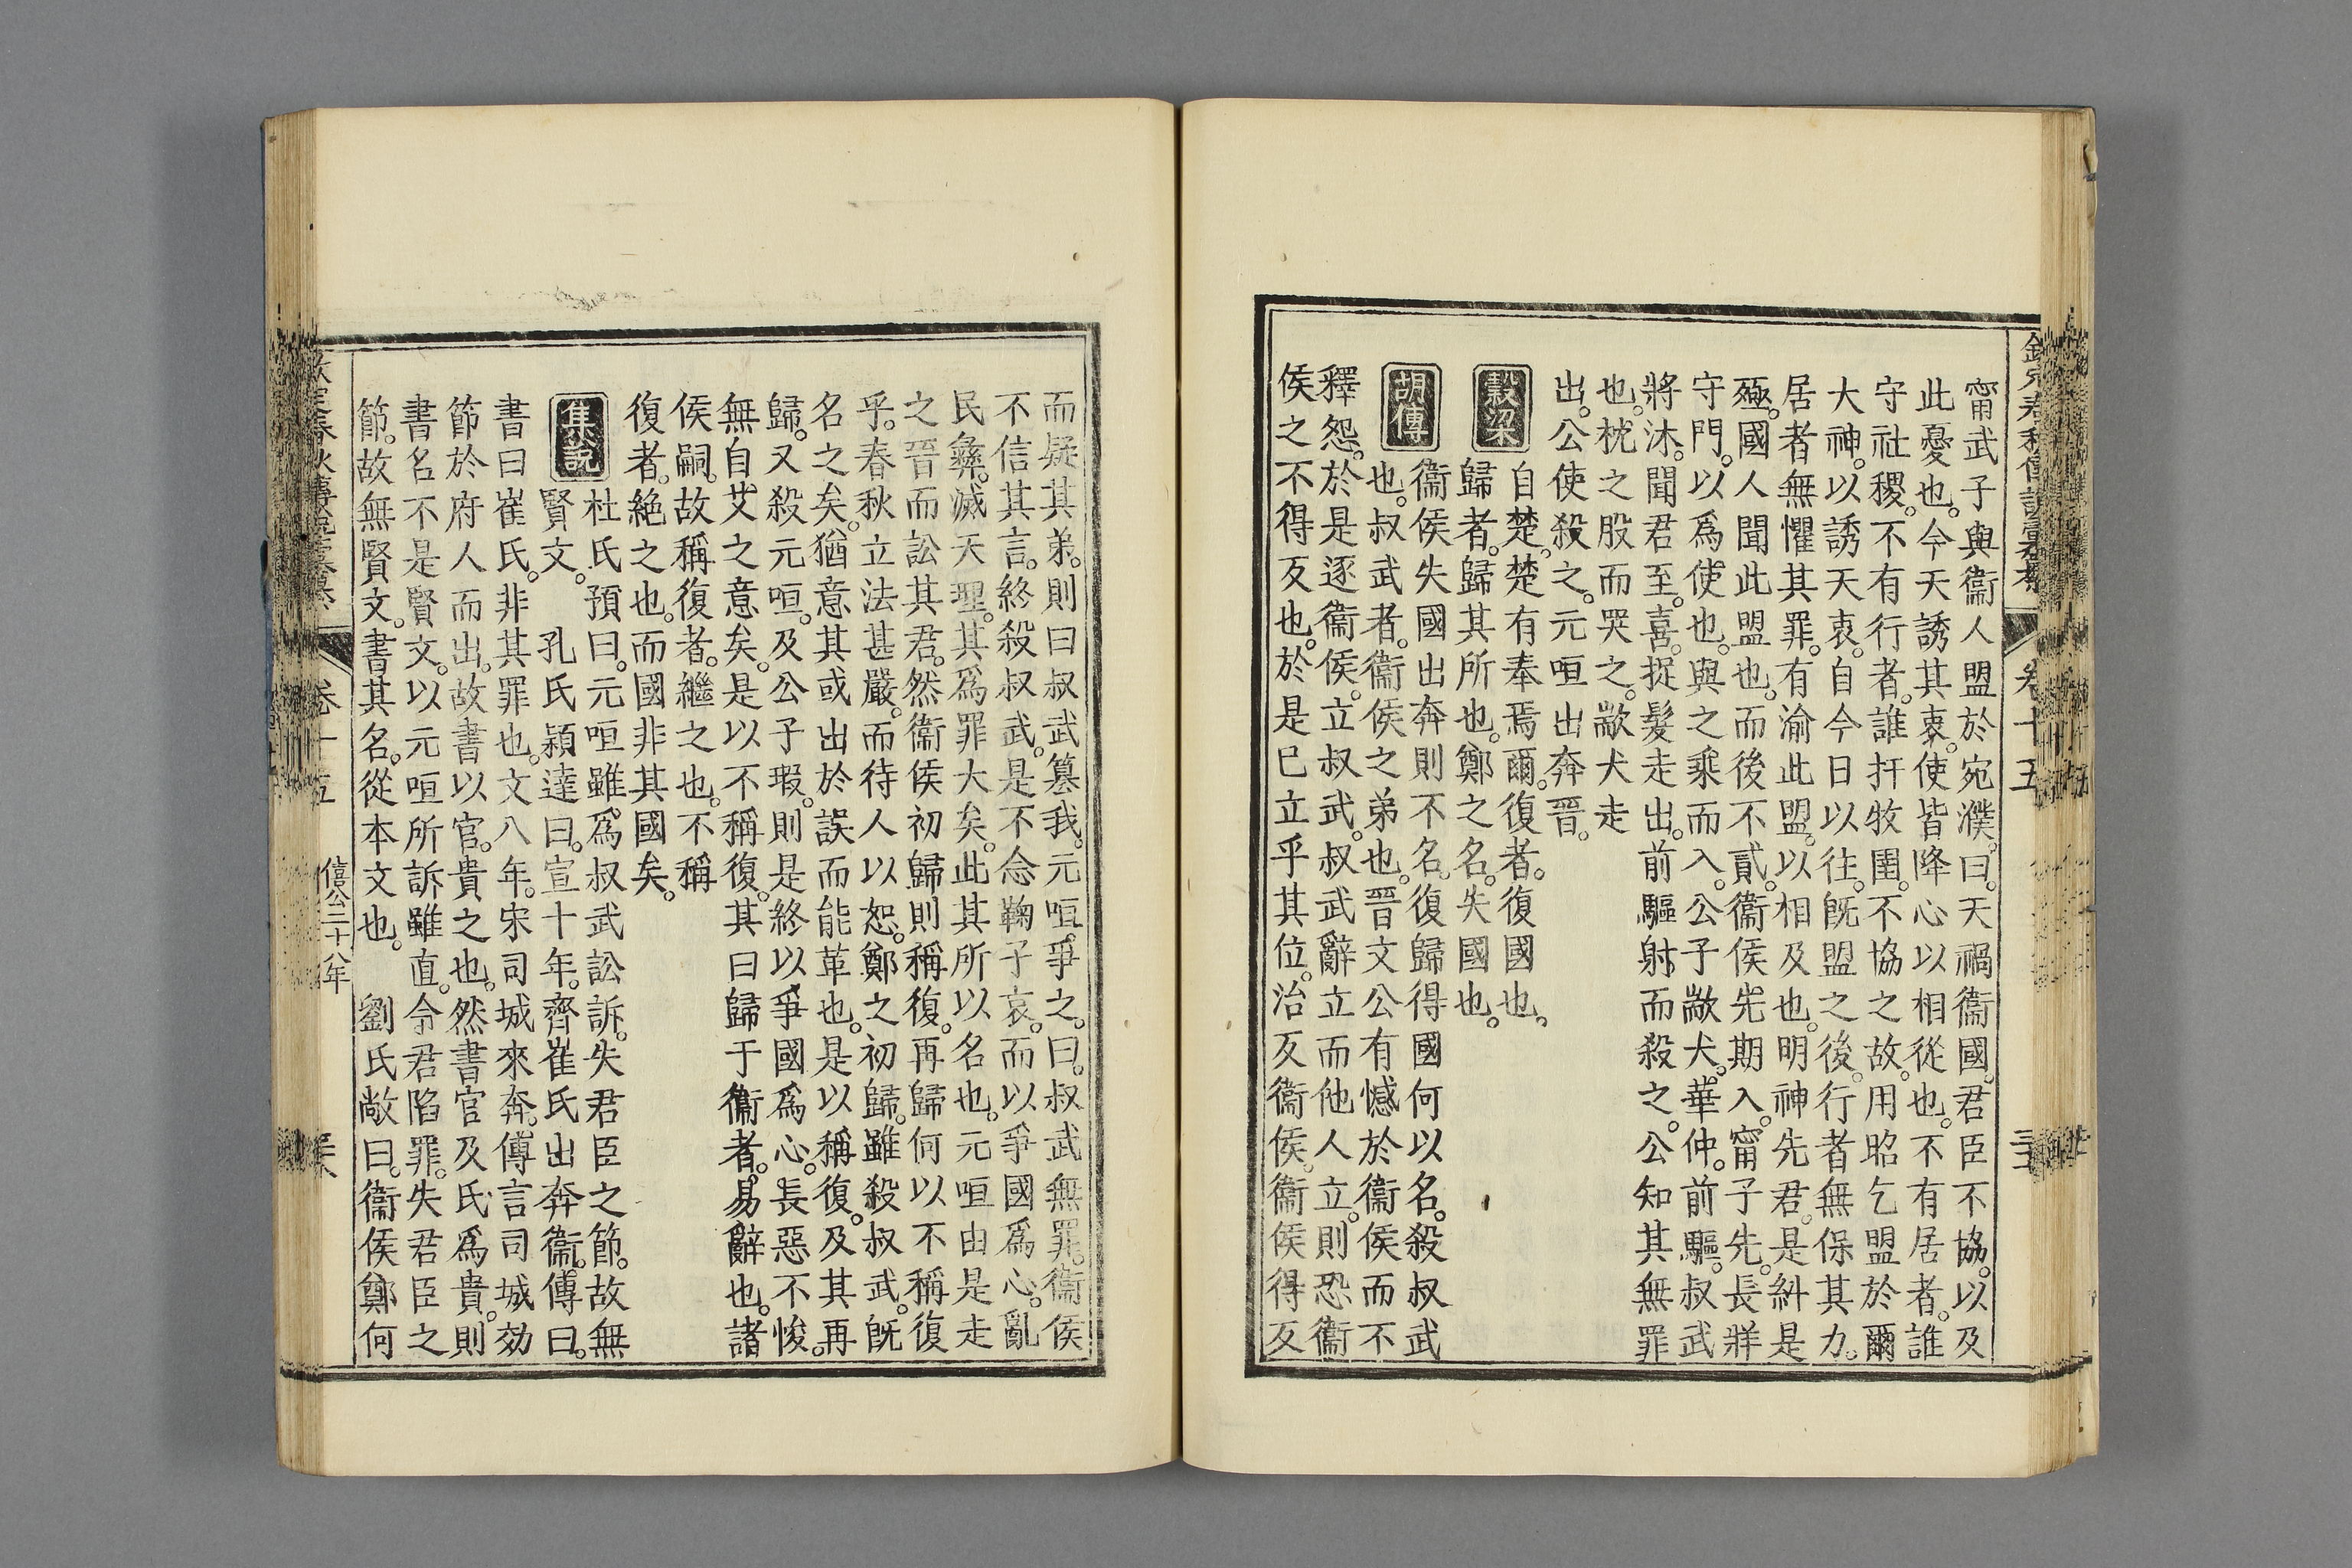 甯武子與衞人盟於宛濮。曰。天禍衞國。君臣不協。以及
此憂也。今天誘其衷。使皆降心以相從也。不有居者。誰
守社稷。不有行者。誰扞牧圉。不協之故。用昭乞盟於爾
大神。以誘天衷。自今日以往。旣盟之後。行者無保其力。
居者無懼其罪。有渝此盟。以相及也。明神先君。是糾是
殛。國人聞此盟也。而後不貳。衞侯先期入。甯子先。長牂
守門。以爲使也。與之乘而入。公子歂犬。華仲。前驅。叔武
將沐。聞君至。喜。捉髮走出。前驅射而殺之。公知其無罪
也。枕之股而哭之。歂犬走
出。公使殺之。元咺出奔晉。
穀梁
自楚。楚有奉焉爾。復者。復國也。
歸者。歸其所也。鄭之名。失國也。
胡傳
衞侯失國出奔則不名。復歸得國何以名。殺叔武
也。叔武者。衞侯之弟也。晉文公有憾於衞侯而不
釋怨。於是逐衞侯。立叔武。叔武辭立而他人立。則恐衞
侯之不得反也。於是已立乎其位。治反衞侯。衞侯得反
而疑其弟。則曰叔武篡我。元咺爭之。曰。叔武無罪。衞侯
不信其言。終殺叔武。是不念鞠子哀。而以爭國爲心。亂
民彝。滅天理。其爲罪大矣。此其所以名也。元咺由是走
之晉而訟其君。然衞侯初歸則稱復。再歸何以不稱復
乎。春秋立法甚嚴。而待人以恕。鄭之初歸。雖殺叔武。旣
名之矣。猶意其或出於誤而能革也。是以稱復。及其再
歸。又殺元咺。及公子瑕。則是終以爭國爲心。長惡不悛。
無自艾之意矣。是以不稱復。其曰歸于衞者。易辭也。諸
侯嗣。故稱復者。繼之也。不稱
復者。絶之也。而國非其國矣。
集說
杜氏預曰。元咺雖爲叔武訟訴。失君臣之節。故無
賢文。 孔氏穎達曰。宣十年。齊崔氏出奔衞。傳曰。
書曰崔氏。非其罪也。文八年。宋司城來奔。傳言司城效
節於府人而出。故書以官。貴之也。然書官及氏爲貴。則
書名不是賢文。以元咺所訴雖直。令君陷罪。失君臣之
節。故無賢文。書其名。從本文也。 劉氏敞曰。衞侯鄭何
卷十五
僖公二十八年